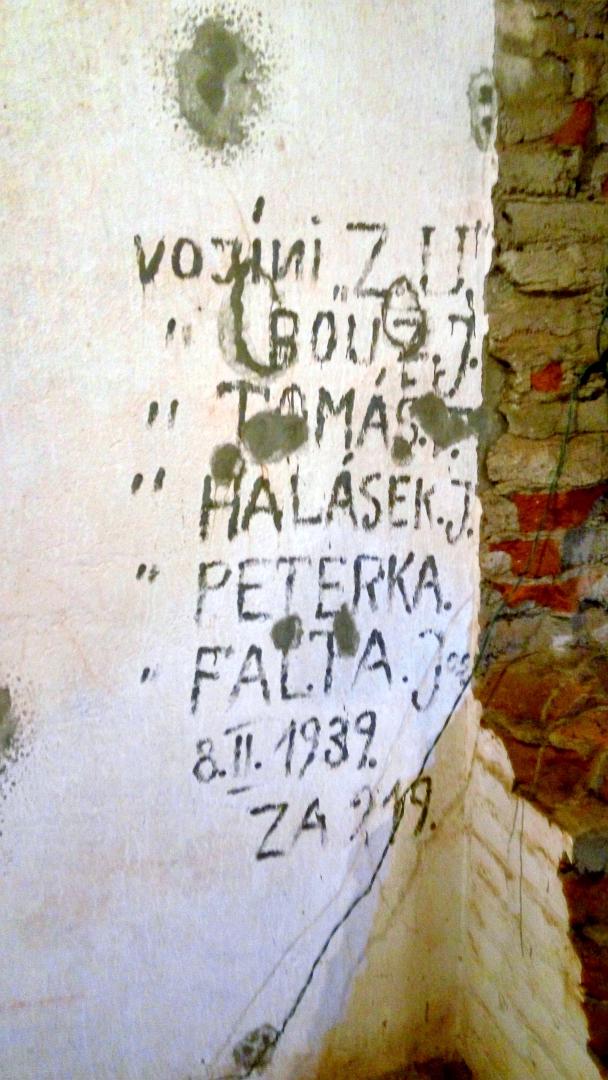 vojíni „Z. IJ"
" BOUŠ J.
" TOMÁŠ.
" HALÁSEK.J.
" PETERKA.
" FALTA. J
8.II. 1939.
ZA